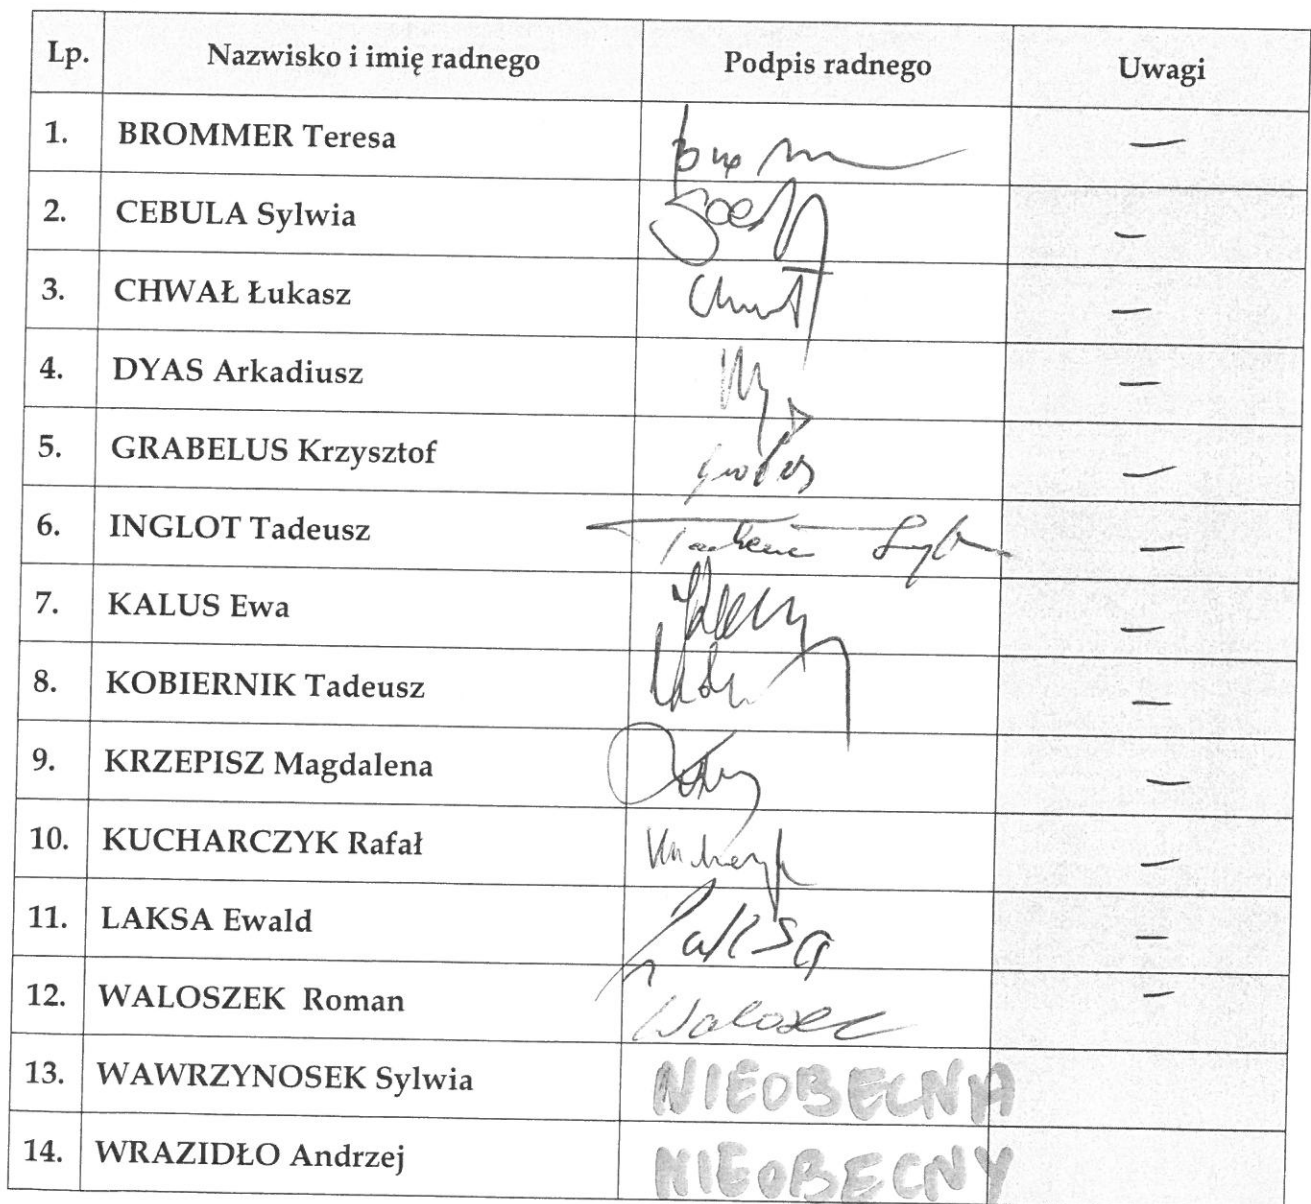 Lp. Nazwisko i imię radnego Podpis radnego Uwagi
1. BROMMER Teresa —
2. CEBULA Sylwia —
3. CHWAŁ Łukasz —
4. DYAS Arkadiusz —
5. GRABELUS Krzysztof —
6. INGLOT Tadeusz —
7. KALUS Ewa —
8. KOBIERNIK Tadeusz —
9. KRZEPISZ Magdalena —
10. KUCHARCZYK Rafał —
11. LAKSA Ewald Laksa —
12. WALOSZEK Roman —
13. WAWRZYNOSEK Sylwia NIEOBECNA
14. WRAZIDŁO Andrzej NIEOBECNY